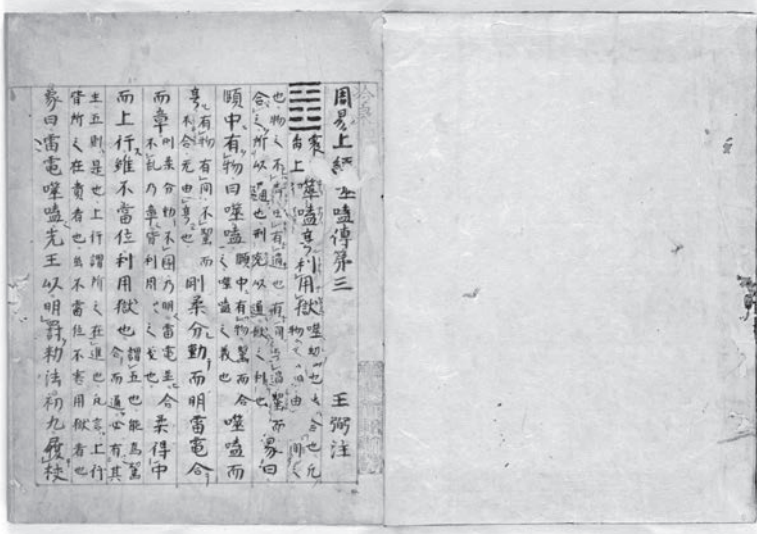 周易上經噬嗑傳第三 王弼注
震下离上 噬嗑亨利用獄 噬齧也嗑合也凡物之不親由有間
也物之不齊由有過也有間与過齧而合之所以通也刑克以通獄之利也 彖曰
頤中有物曰噬嗑 頤中有物齧而合之噬嗑之義也 噬嗑而
亨 有物有間不齧而不合无由亨也 剛柔分動而明雷電合
而章 剛柔分動不溷乃明雷電並合不乱乃章皆利用獄之義也 柔得中
而上行雖不當位利用獄也 謂五也能為齧合而通必有其
主五則是也上行謂所之在進也凡言上行皆所之在貴者也雖不當位不害用獄者也
象曰雷電噬嗑先王以明罰勑法初九履校